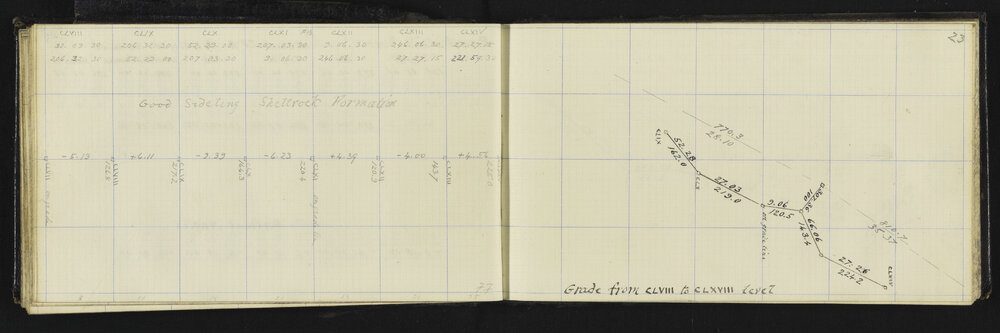 CLVIII CLIX CLX CLXI CLXII CLXIII CLXIV
32.03.30 206.32.30 52.29.18 207.03.30 9.06.30 246.06.30 27.27.15
206.32.30 52.29.00 207.03.20 9.06.20 246.06.30 27.27.15 221.59.30
Good Sideling Shellrock Formation
-5.13 +6.11 -9.39 -6.23 +4.39 -4.00 +4.56
CLVII
CLVIII
CLIX
217.2
CLX
CLXI
220.4
CLXII
120.9
CLXIII
23
770.3
28.10
CLIX
52.28
162.0
CLX
27.03
219.0
9.06
120.5
100
66.06
163.4
27.26
224.2
CLXIV
35.37
Grade from CLVIII to CLXVIII level